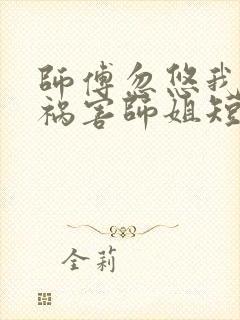 師傅忽悠我
祸害師姐短
全莉